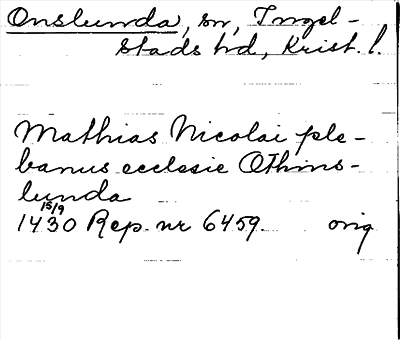 Onslunda, sn, Ingel-
stads hd, Krist. l.
Mathias Nicolai ple-
banus ecclesie Othins-
lunda
15/9
1430 Rep. nr 6459. orig